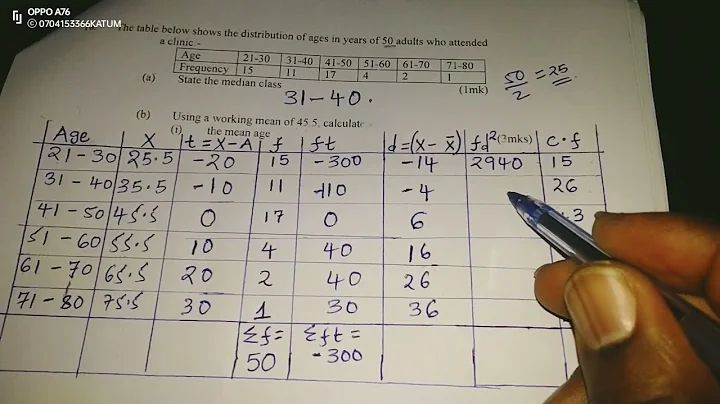 OPPO A76
© 0704153366KATUM
The table below shows the distribution of ages in years of 50 adults who attended
a clinic:-
Age 21-30 31-40 41-50 51-60 61-70 71-80
Frequency 15 11 17 4 2 1
50/2 = 25
(a) State the median class (1mk)
31-40.
(b) Using a working mean of 45.5, calculate
(i) the mean age (3mks)
Age X t=X-A f ft d=(X-x̄) fd² c.f
21-30 25.5 -20 15 -300 -14 2940 15
31-40 35.5 -10 11 -110 -4 26
41-50 45.5 0 17 0 6 3
51-60 55.5 10 4 40 16
61-70 65.5 20 2 40 26
71-80 75.5 30 1 30 36
Σf= Σft=
50 -300